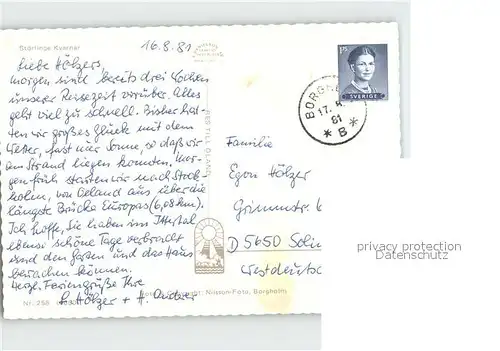 Störlinge Kvarnar
16.8.81
Liebe Hölzers,
morgen sind bereits drei Wochen
unserer Reisezeit vorüber. Alles
geht viel zu schnell. Bisher hat-
ten wir großes Glück mit dem
Wetter, fast nur Sonne, so daß wir
am Strand liegen konnten. Mor-
gen früh starten wir nach Stock-
holm, von Oeland aus über die
längste Brücke Europas (6,08km).
Ich hoffe, Sie haben im Ittertal
ebenso schöne Tage verbracht
und den Garten und das Haus
bewachen können.
Herzl. Feriengrüße Ihre
Hölzer + H.
Nr. 258
Nilsson-Foto, Borgholm
TILL ÖLAND
175
SVERIGE
BORGH
17.
81
* B *
Familie
Egon Hölzer
D 5650
Westdeutsch
privacy protection
Datenschutz